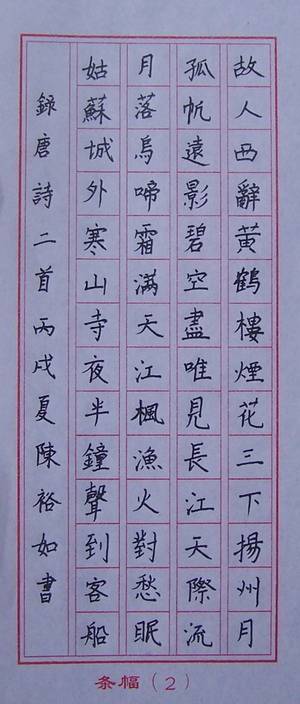 故人西辭黃鶴樓煙花三下揚州月
孤帆遠影碧空盡唯見長江天際流
月落烏啼霜滿天江楓漁火對愁眠
姑蘇城外寒山寺夜半鐘聲到客船
錄唐詩二首丙戌夏陳裕如書
条幅（2）